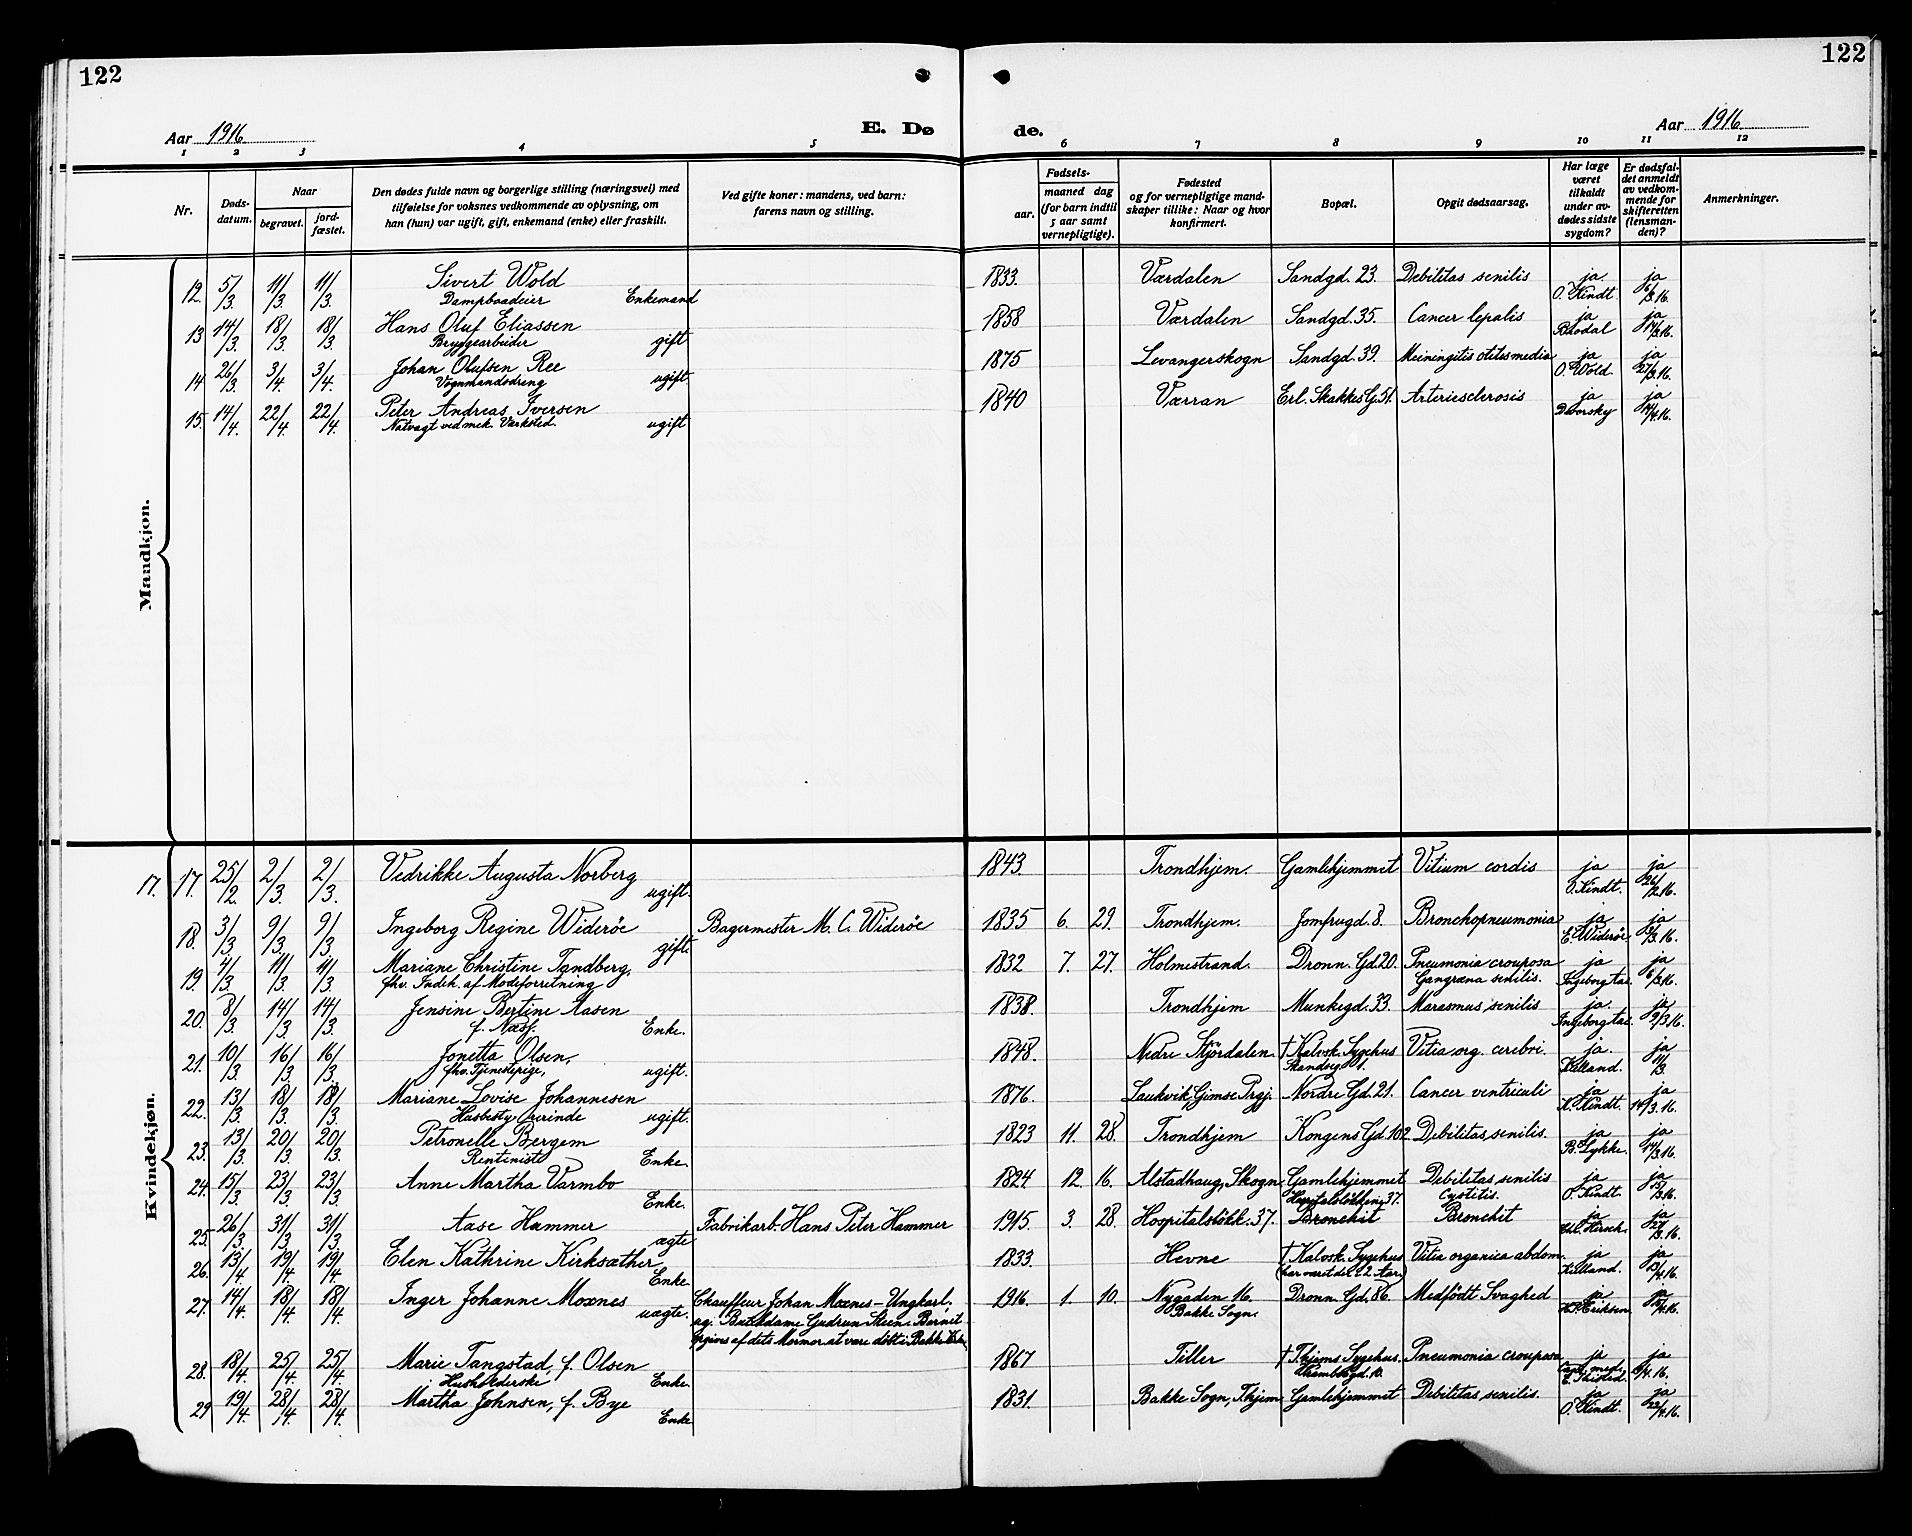 122
122
Aar 1916
E. Dø
de.
Aar 1916
1 2 3 4 5 6 7 8 9 10 11 12
Nr.
Døds-
datum.
Naar
begravet.
jord-
fæstet.
Den dødes fulde navn og borgerlige stilling (næringsvei) med
tilføielse for voksnes vedkommende av oplysning, om
han (hun) var ugift, gift, enkemand (enke) eller fraskilt.
Ved gifte koner: mandens, ved barn:
farens navn og stilling.
Fødsels-
aar.
maaned dag
(for barn indtil
5 aar samt
vernepligtige).
Fødested
og for vernepligtige mand-
skaper tillike: Naar og hvor
konfirmert.
Bopæl.
Opgit dødsaarsag.
Har læge
været
tilkaldt
under av-
dødes sidste
sygdom?
Er dødsfal-
det anmeldt
av vedkom-
mende for
skifteretten
(lensman-
den)?
Anmerkninger.
Mandkjøn.
12. 5/3. 11/3 11/3. Sivert Wold 1833. Værdalen Sandgd. 23. Debilitas senilis ja ja
Dampbaadeier Enkemand O. Kindt. 6/3.16.
13 14/3. 18/3 18/3 Hans Oluf Eliassen 1858 Værdalen Sandgd. 35. Cancer lepalis ja ja
Bryggearbeider gift 14/3.16.
14 26/3. 3/4. 3/4. Johan Olufsen Ree 1875 Levangerskogn Sandgd. 39. Meiningitis otitesmedia ja ja
Vognmandsdreng ugift O. Wold. 27/3.16.
15. 14/4. 22/4. 22/4. Peter Andreas Iversen 1840 Værran Erl. Skakkes G. 51. Arteriesclerosis ja ja
Natvagt ved mek. Værksted. ugift Dworsky 14/4.16.
Kvindekjøn.
17. 17. 25/2. 2/3. 2/3. Vedrikke Augusta Norberg 1843. Trondhjem. Gamlehjemmet Vitium cordis ja ja
ugift. O. Kindt. 26/2.16.
18. 3/3. 9/3. 9/3. Ingeborg Regine Wideröe Bagermester M. C. Wideröe 1835 6. 29. Trondhjem. Jomfrugd. 8. Bronchopneumonia ja ja
gift. E. Wideröe. 3/3.16.
19. 4/3. 11/3. 11/3. Mariane Christine Tandberg, 1832 7. 27. Holmestrand. Dronn. Gd. 20. Pneumonia crouposa ja ja
fhv. Indeh. af Modeforretning Gangræna senilis. Ingeborg Aas. 6/3.16.
20. 8/3. 14/3 14/3. Jensine Bertine Aasen 1838. Trondhjem Munkegd. 33. Marasmus senilis ja. ja
f. Næss. Enke. Ingeborg Aas. 9/3.16.
21. 10/3 16/3 16/3. Jonetta Olsen, 1848. Nedre Stjördalen. † Kalvsk. Sygehus Vitia org. cerebri. ja. ja
fhv. Tjenestepige, ugift. Strandveg 1. Kielland. 11/3
22. 13/3 18/3. 18/3. Mariane Lovise Johannesen 1876. Laukvik, Gimse Prgj. Nordre Gd. 21. Cancer ventriculi ja ja
Husbestyrerinde ugift. K. Kindt. 14/3.16.
23. 13/3. 20/3 20/3. Petronelle Bergem 1823 11. 28. Trondhjem Kongens Gd. 102 Debilitas senilis. ja ja
Renteniste Enke. B. Lykke. 14/3.16.
24. 15/3. 23/3 23/3 Anne Martha Varmbo 1824. 12. 16. Alstadhaug, Skogn Gamlehjemmet Debilitas senilis ja ja
Enke. Hospitalslökken 37. Cystitis. O. Kindt. 15/3.16.
25. 26/3 31/3 31/3 Aase Hammer Fabrikarb. Hans Peter Hammer 1915 3. 28. Hospitalslökk. 37. Bronchit Bronchit ja ja
ægte Chl. Hirsch. 27/3.16.
26. 13/4 19/4 19/4 Elen Kathrine Kirksæther 1833. Hevne † Kalvsk. Sygehus Vitia organica abdom. ja ja
Enke (har været der i 2 Aar) Kielland. 13/4.16.
27. 14/4 18/4 18/4 Inger Johanne Moxnes Chauffeur Johan Moxnes - Ungkarl. 1916. 1. 10. Nygaden 16. Dronn. Gd. 86. Medfödt Svaghed ja ja
uægte. ug. Butikdame Gudrun Steen. Barnet Bakke Sogn. H. P. Eriksen. 14/4.16.
opgives af dets Mormor at være döbt i Bakke Kirke
28. 18/4. 25/4. 25/4. Marie Tangstad, f. Olsen 1867 Tiller † Thjems Sygehus. Pneumonia crouposa ja ja
Husholderske Enke. Krambugd. 10. Cand. med. 19/4.16.
29 19/4. 28/4. 28/4. Martha Johnsen, f. Bye 1831. Bakke Sogn, Thjem Gamlehjemmet Debilitas senilis. ja ja
Enke O. Kindt. 22/4.16.